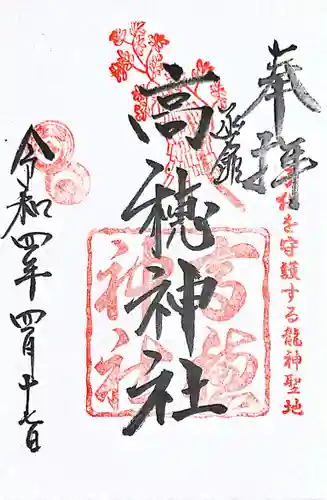 奉拝
を守護する龍神聖地
函館
高穂神社
高穂
神社
令和四年四月十七日